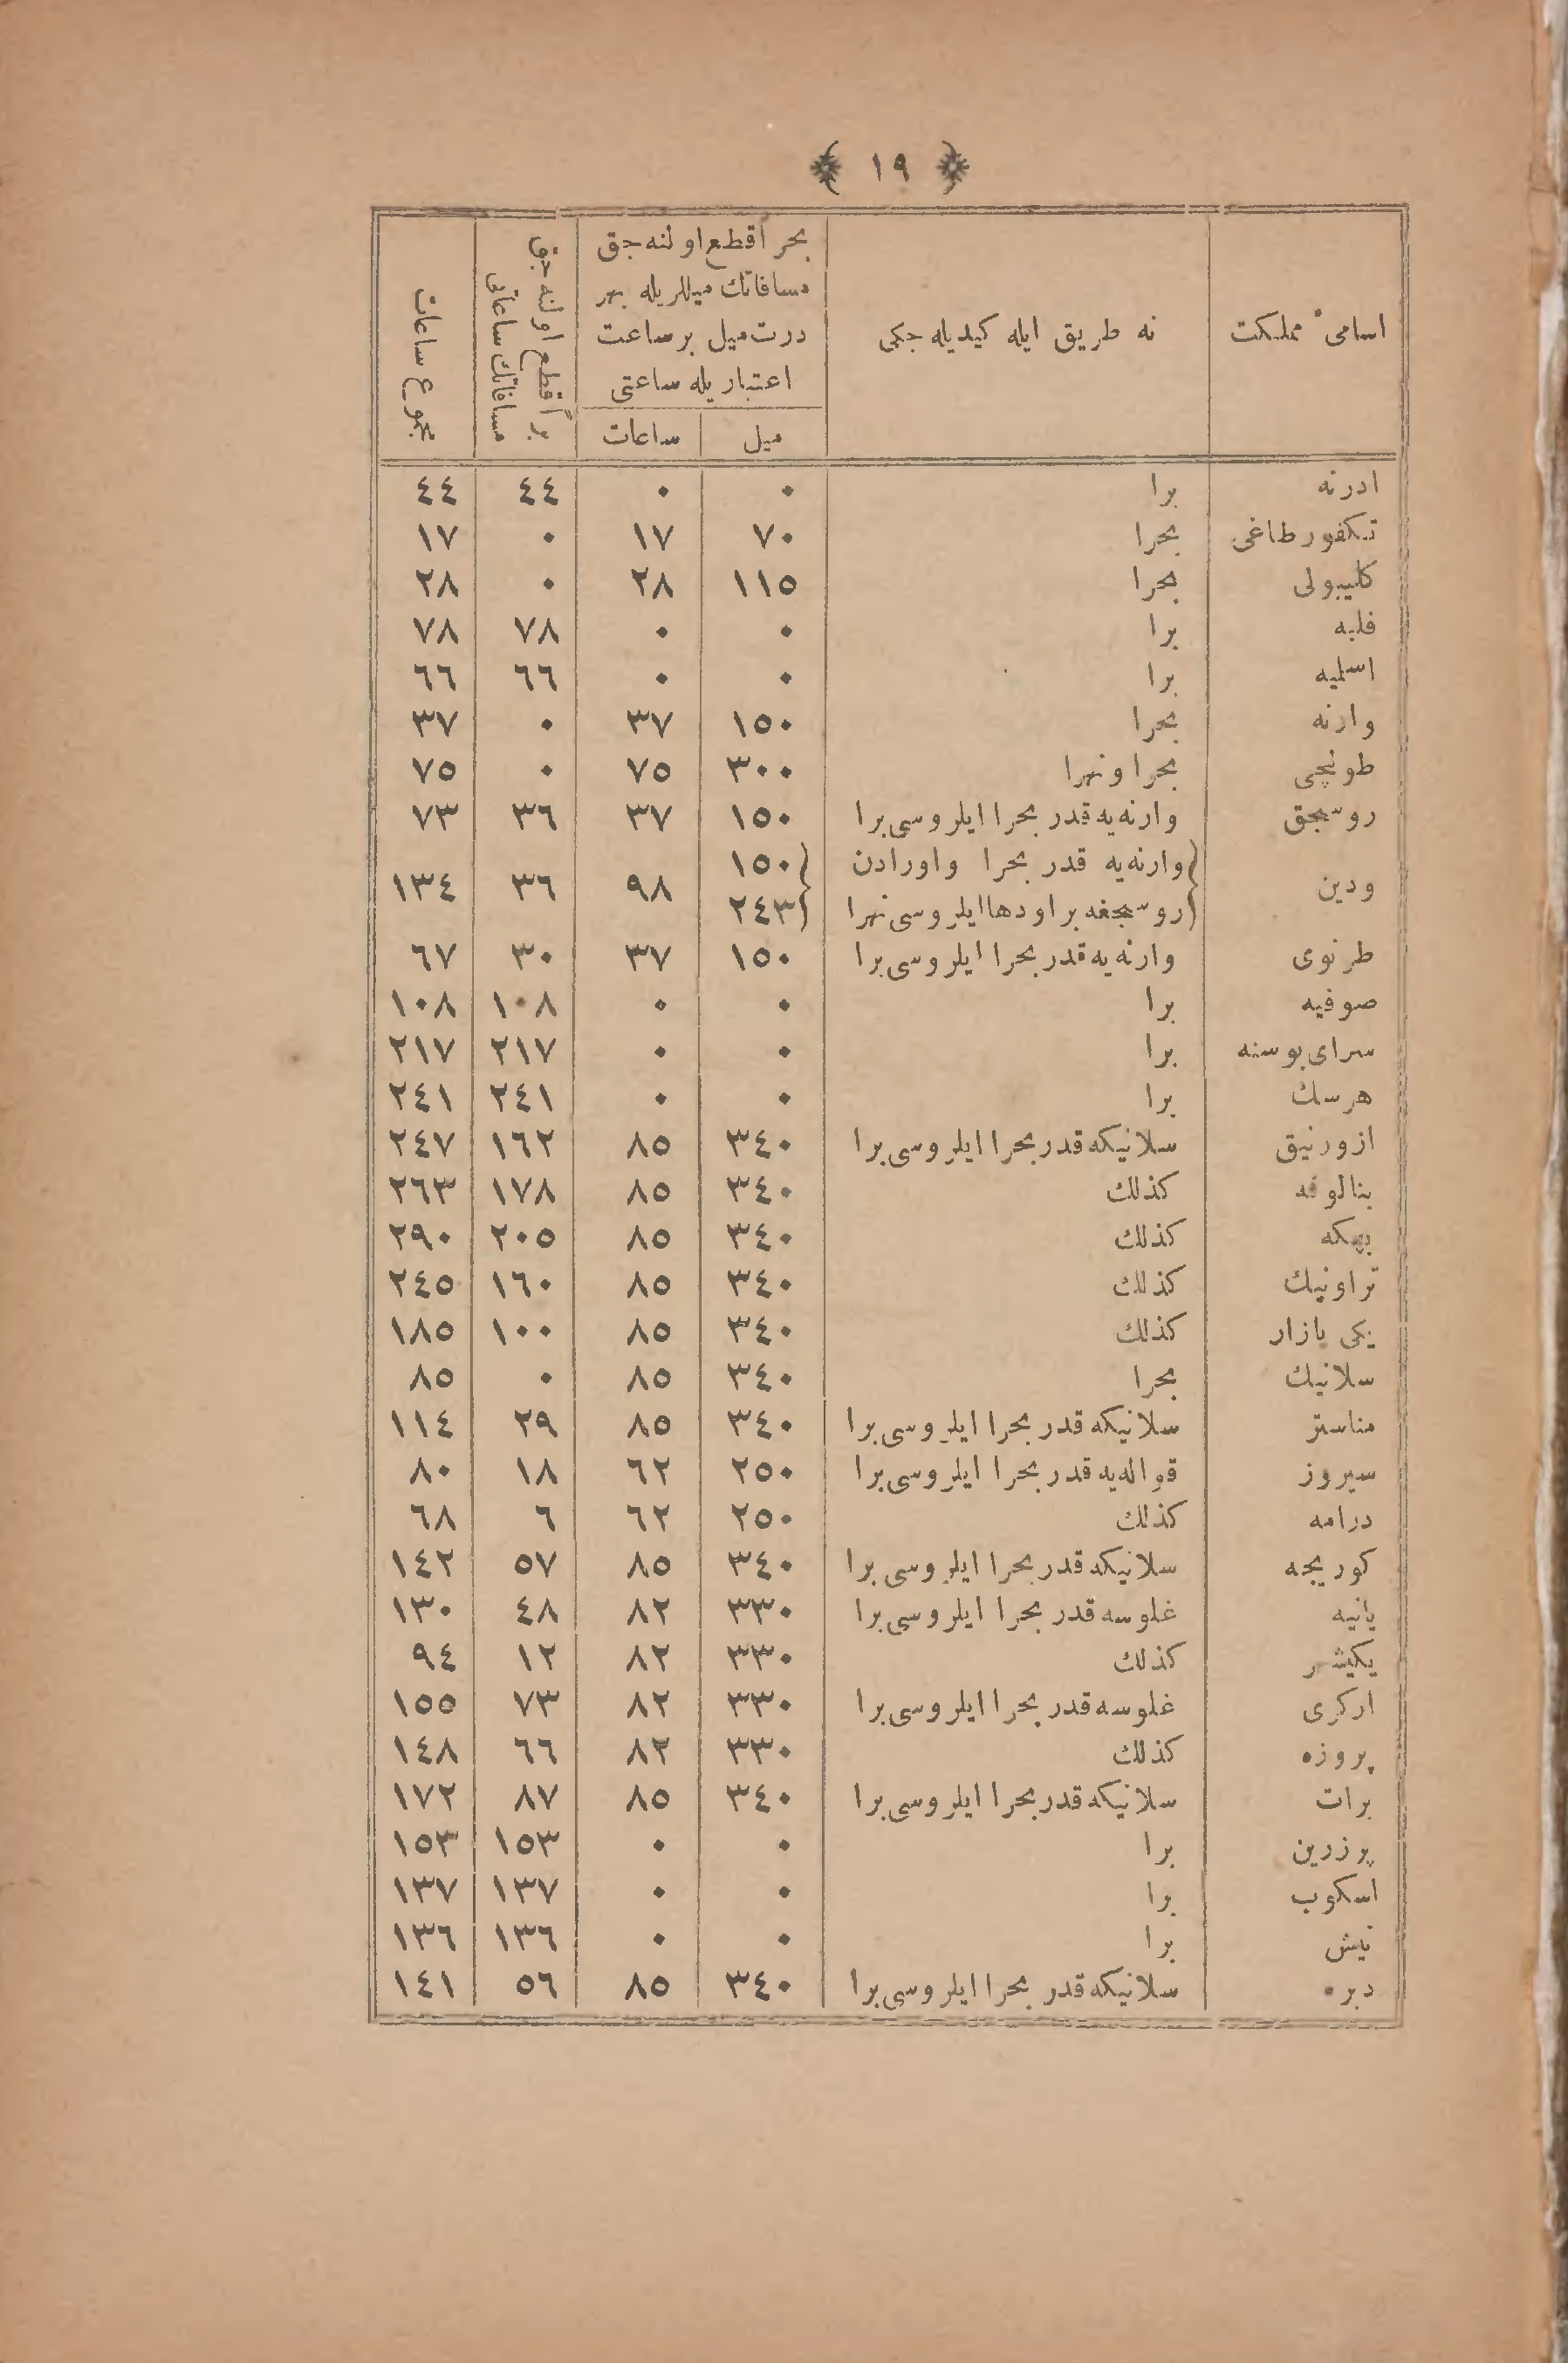 ﴿ ١٩ ﴾
اسامیٔ مملکت | نه طریق ایله کیدیله جکی | بحراً قطع اولنه جق مسافاتك میللریله بهر درت میل بر ساعت اعتباریله ساعتی | براً قطع اولنه جق مسافاتك ساعاتی | مجموع ساعات
میل | ساعات
ادرنه | برا | ٠ | ٠ | ٤٤ | ٤٤
تکفورطاغی | بحرا | ٧٠ | ١٧ | ٠ | ١٧
کلیبولی | بحرا | ١١٥ | ٢٨ | ٠ | ٢٨
فلبه | برا | ٠ | ٠ | ٧٨ | ٧٨
اسلمیه | برا | ٠ | ٠ | ٦٦ | ٦٦
وارنه | بحرا | ١٥٠ | ٣٧ | ٠ | ٣٧
طولچی | بحرا ونهرا | ٣٠٠ | ٧٥ | ٠ | ٧٥
روسجق | وارنه یه قدر بحرا ایلروسی برا | ١٥٠ | ٣٧ | ٣٦ | ٧٣
ودین | وارنه یه قدر بحرا واورادن روسجغه برا ودها ایلروسی نهرا | ١٥٠ ٢٤٣ | ٩٨ | ٣٦ | ١٣٤
طرنوی | وارنه یه قدر بحرا ایلروسی برا | ١٥٠ | ٣٧ | ٣٠ | ٦٧
صوفیه | برا | ٠ | ٠ | ١٠٨ | ١٠٨
سرای بوسنه | برا | ٠ | ٠ | ٢١٧ | ٢١٧
هرسك | برا | ٠ | ٠ | ٢٤١ | ٢٤١
ازورنیق | سلانیکه قدر بحرا ایلروسی برا | ٣٤٠ | ٨٥ | ١٦٢ | ٢٤٧
بنالوقه | کذلك | ٣٤٠ | ٨٥ | ١٧٨ | ٢٦٣
بهکه | کذلك | ٣٤٠ | ٨٥ | ٢٠٥ | ٢٩٠
تراونیك | کذلك | ٣٤٠ | ٨٥ | ١٦٠ | ٢٤٥
یکی بازار | کذلك | ٣٤٠ | ٨٥ | ١٠٠ | ١٨٥
سلانیك | بحرا | ٣٤٠ | ٨٥ | ٠ | ٨٥
مناستر | سلانیکه قدر بحرا ایلروسی برا | ٣٤٠ | ٨٥ | ٢٩ | ١١٤
سیروز | قواله یه قدر بحرا ایلروسی برا | ٢٥٠ | ٦٢ | ١٨ | ٨٠
درامه | کذلك | ٢٥٠ | ٦٢ | ٦ | ٦٨
کوریجه | سلانیکه قدر بحرا ایلروسی برا | ٣٤٠ | ٨٥ | ٥٧ | ١٤٢
یانیه | غلوسه قدر بحرا ایلروسی برا | ٣٣٠ | ٨٢ | ٤٨ | ١٣٠
یکیشهر | کذلك | ٣٣٠ | ٨٢ | ١٢ | ٩٤
ارکری | غلوسه قدر بحرا ایلروسی برا | ٣٣٠ | ٨٢ | ٧٣ | ١٥٥
پروزه | کذلك | ٣٣٠ | ٨٢ | ٦٦ | ١٤٨
برات | سلانیکه قدر بحرا ایلروسی برا | ٣٤٠ | ٨٥ | ٨٧ | ١٧٢
پرزرین | برا | ٠ | ٠ | ١٥٣ | ١٥٣
اسکوب | برا | ٠ | ٠ | ١٣٧ | ١٣٧
نیش | برا | ٠ | ٠ | ١٣٦ | ١٣٦
دبره | سلانیکه قدر بحرا ایلروسی برا | ٣٤٠ | ٨٥ | ٥٦ | ١٤١